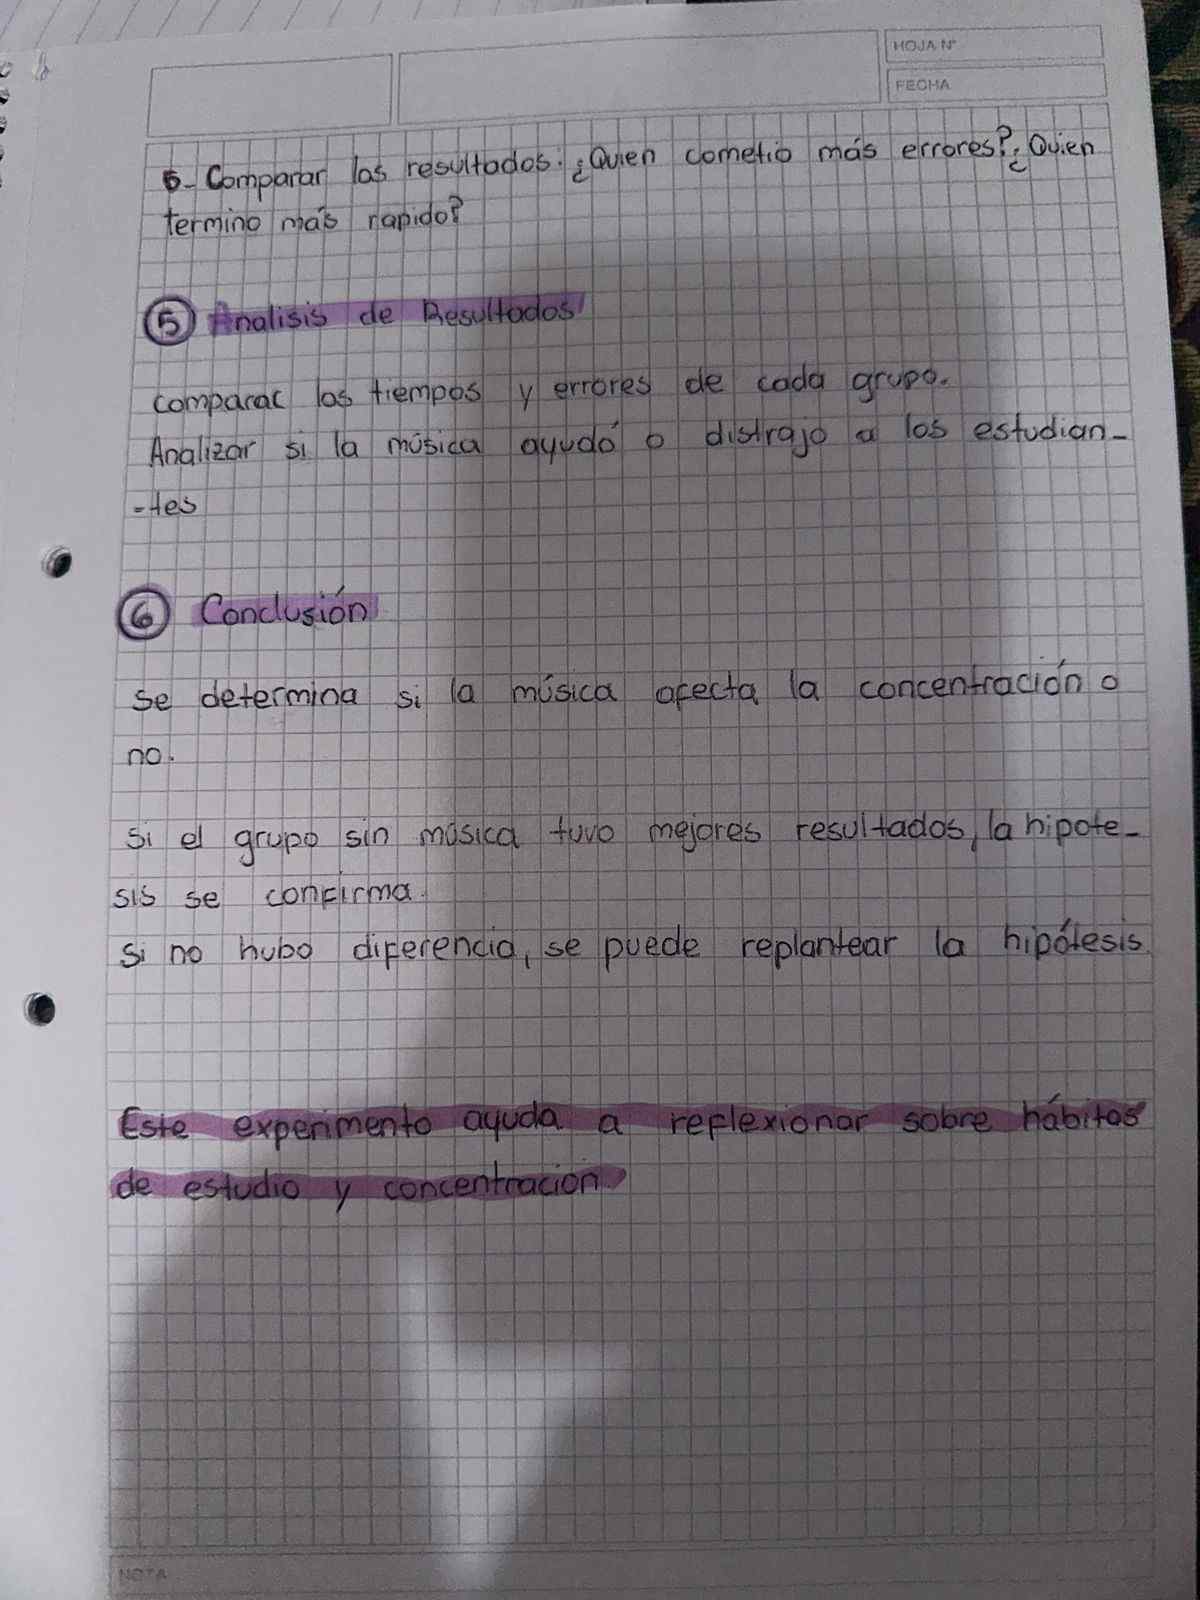 HOJA N°
FECHA
5- Comparar los resultados: ¿Quien cometio más errores? ¿Quien
termino más rapido?
5 Analisis de Resultados
comparar los tiempos y errores de cada grupo.
Analizar si la música ayudó o distrajo a los estudian-
-tes
6 Conclusión
se determina si la música afecta la concentración o
no.
si el grupo sin música tuvo mejores resultados, la hipote-
sis se confirma.
si no hubo diferencia, se puede replantear la hipótesis.
Este experimento ayuda a reflexionar sobre hábitos
de estudio y concentración
NOTA